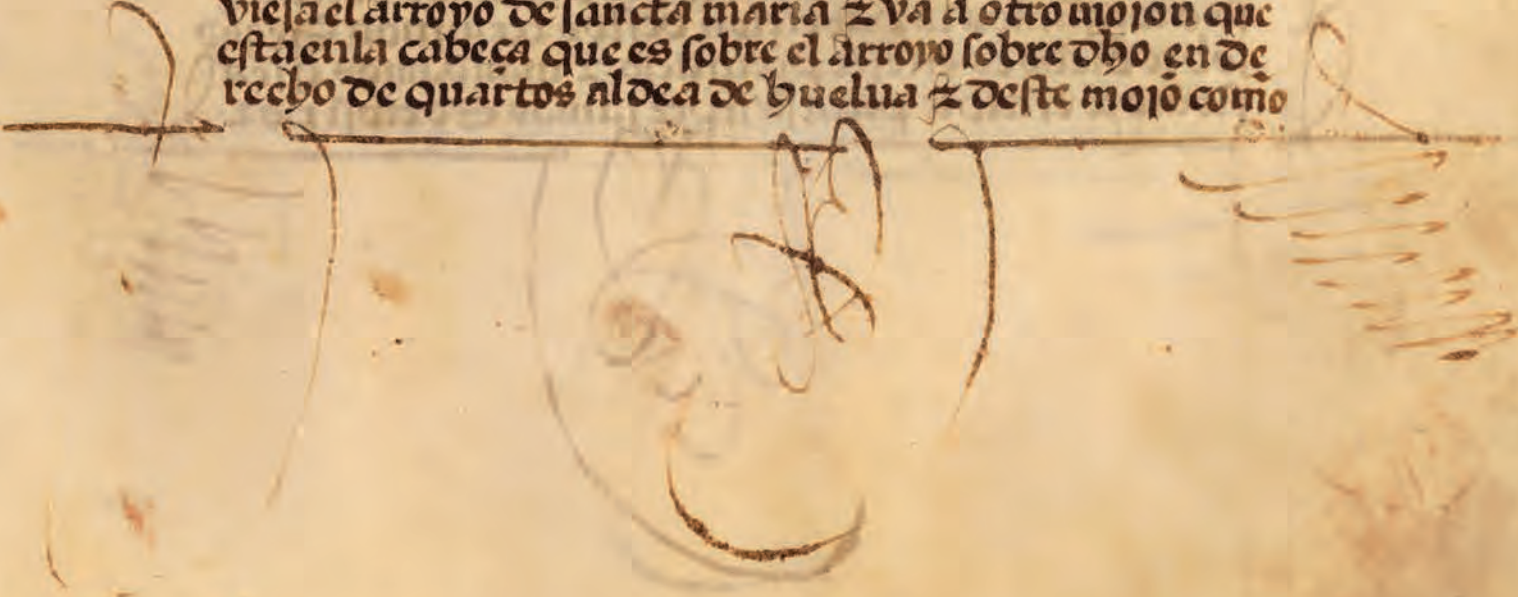 viesa el arroyo de sancta maria ⁊ va a otro mojon que
esta enla cabeça que es sobre el arroyo sobre dho en de
recho de quartos aldea de huelua ⁊ deste mojõ como